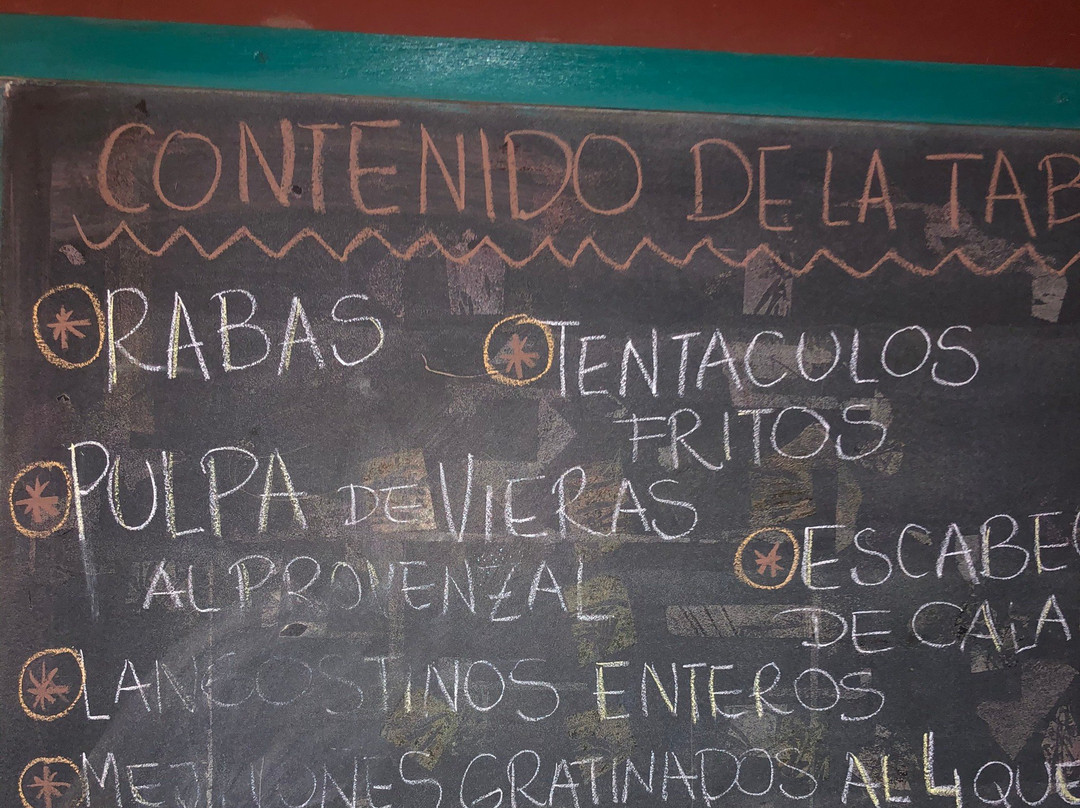 CONTENIDO DE LA TAB
RABAS
TENTACULOS
FRITOS
PULPA DE VIERAS
AL PROVENZAL
ESCABEC
DE CALA
LANGOSTINOS ENTEROS
MEJILLONES GRATINADOS AL 4 QUE